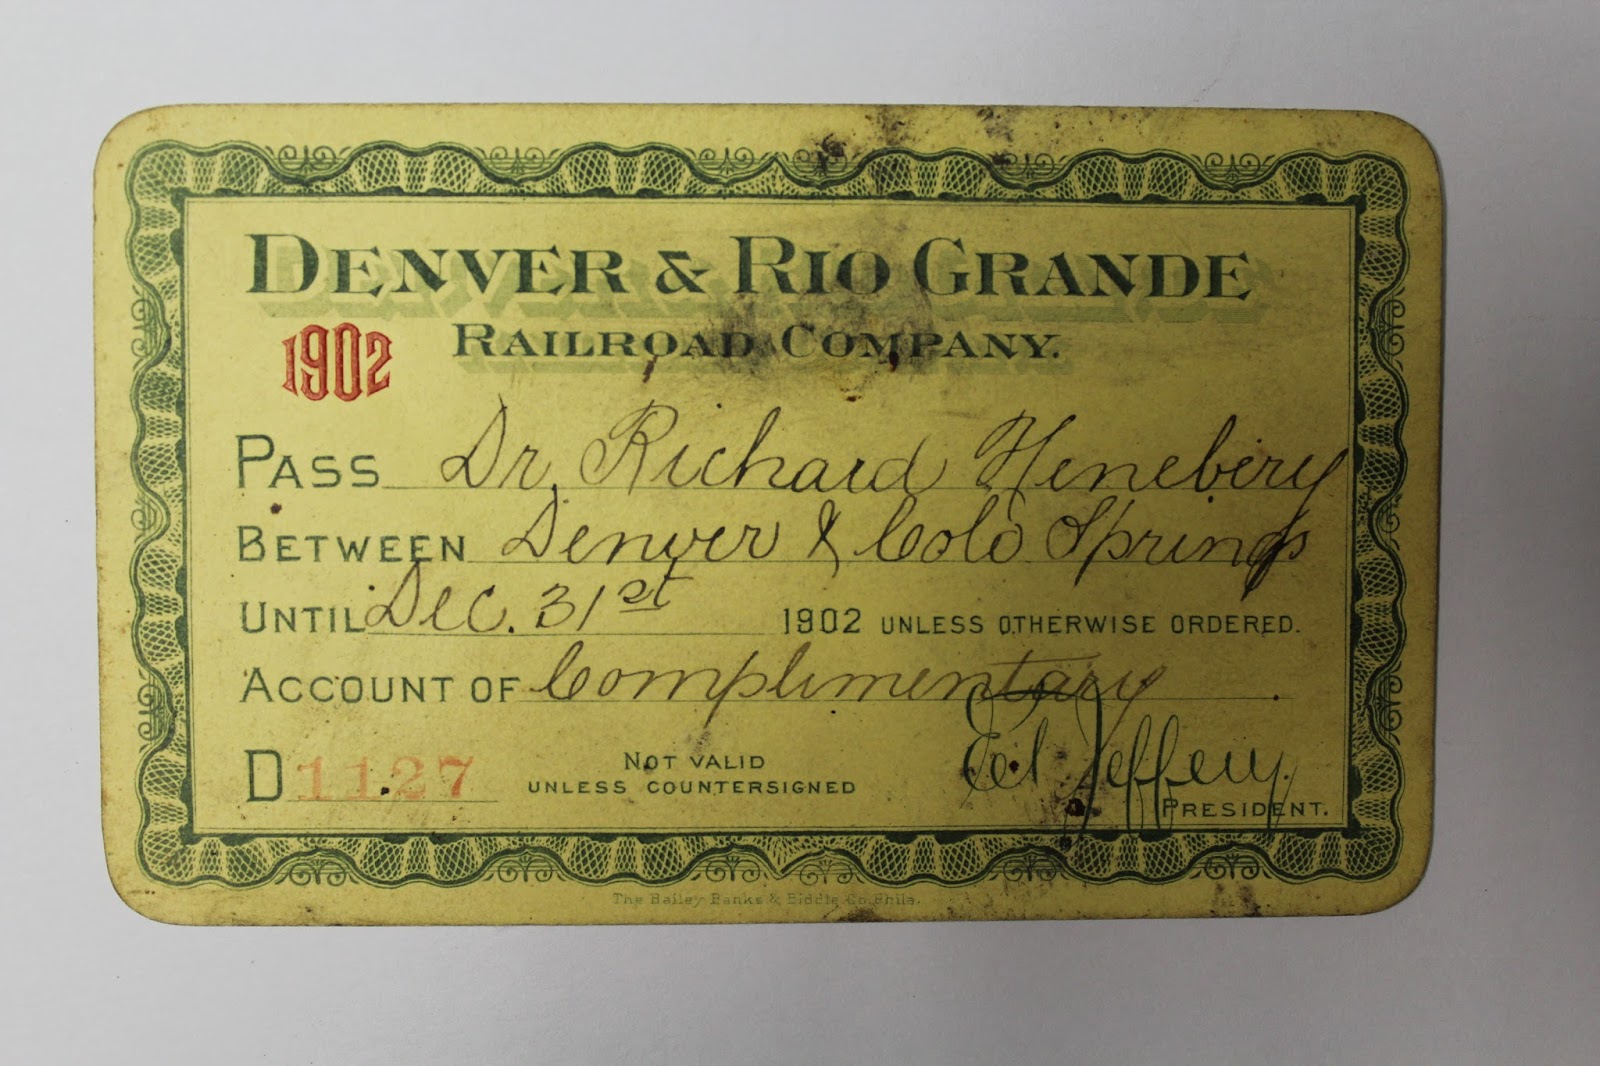 DENVER & RIO GRANDE
RAILROAD COMPANY.
1902
PASS Dr. Richard Henebery
BETWEEN Denver & Colo Springs
UNTIL Dec. 31st 1902 UNLESS OTHERWISE ORDERED.
ACCOUNT OF Complimentary.
D 1127
NOT VALID
UNLESS COUNTERSIGNED
E T Jeffery.
PRESIDENT.
The Bailey Banks & Biddle Co. Phila.